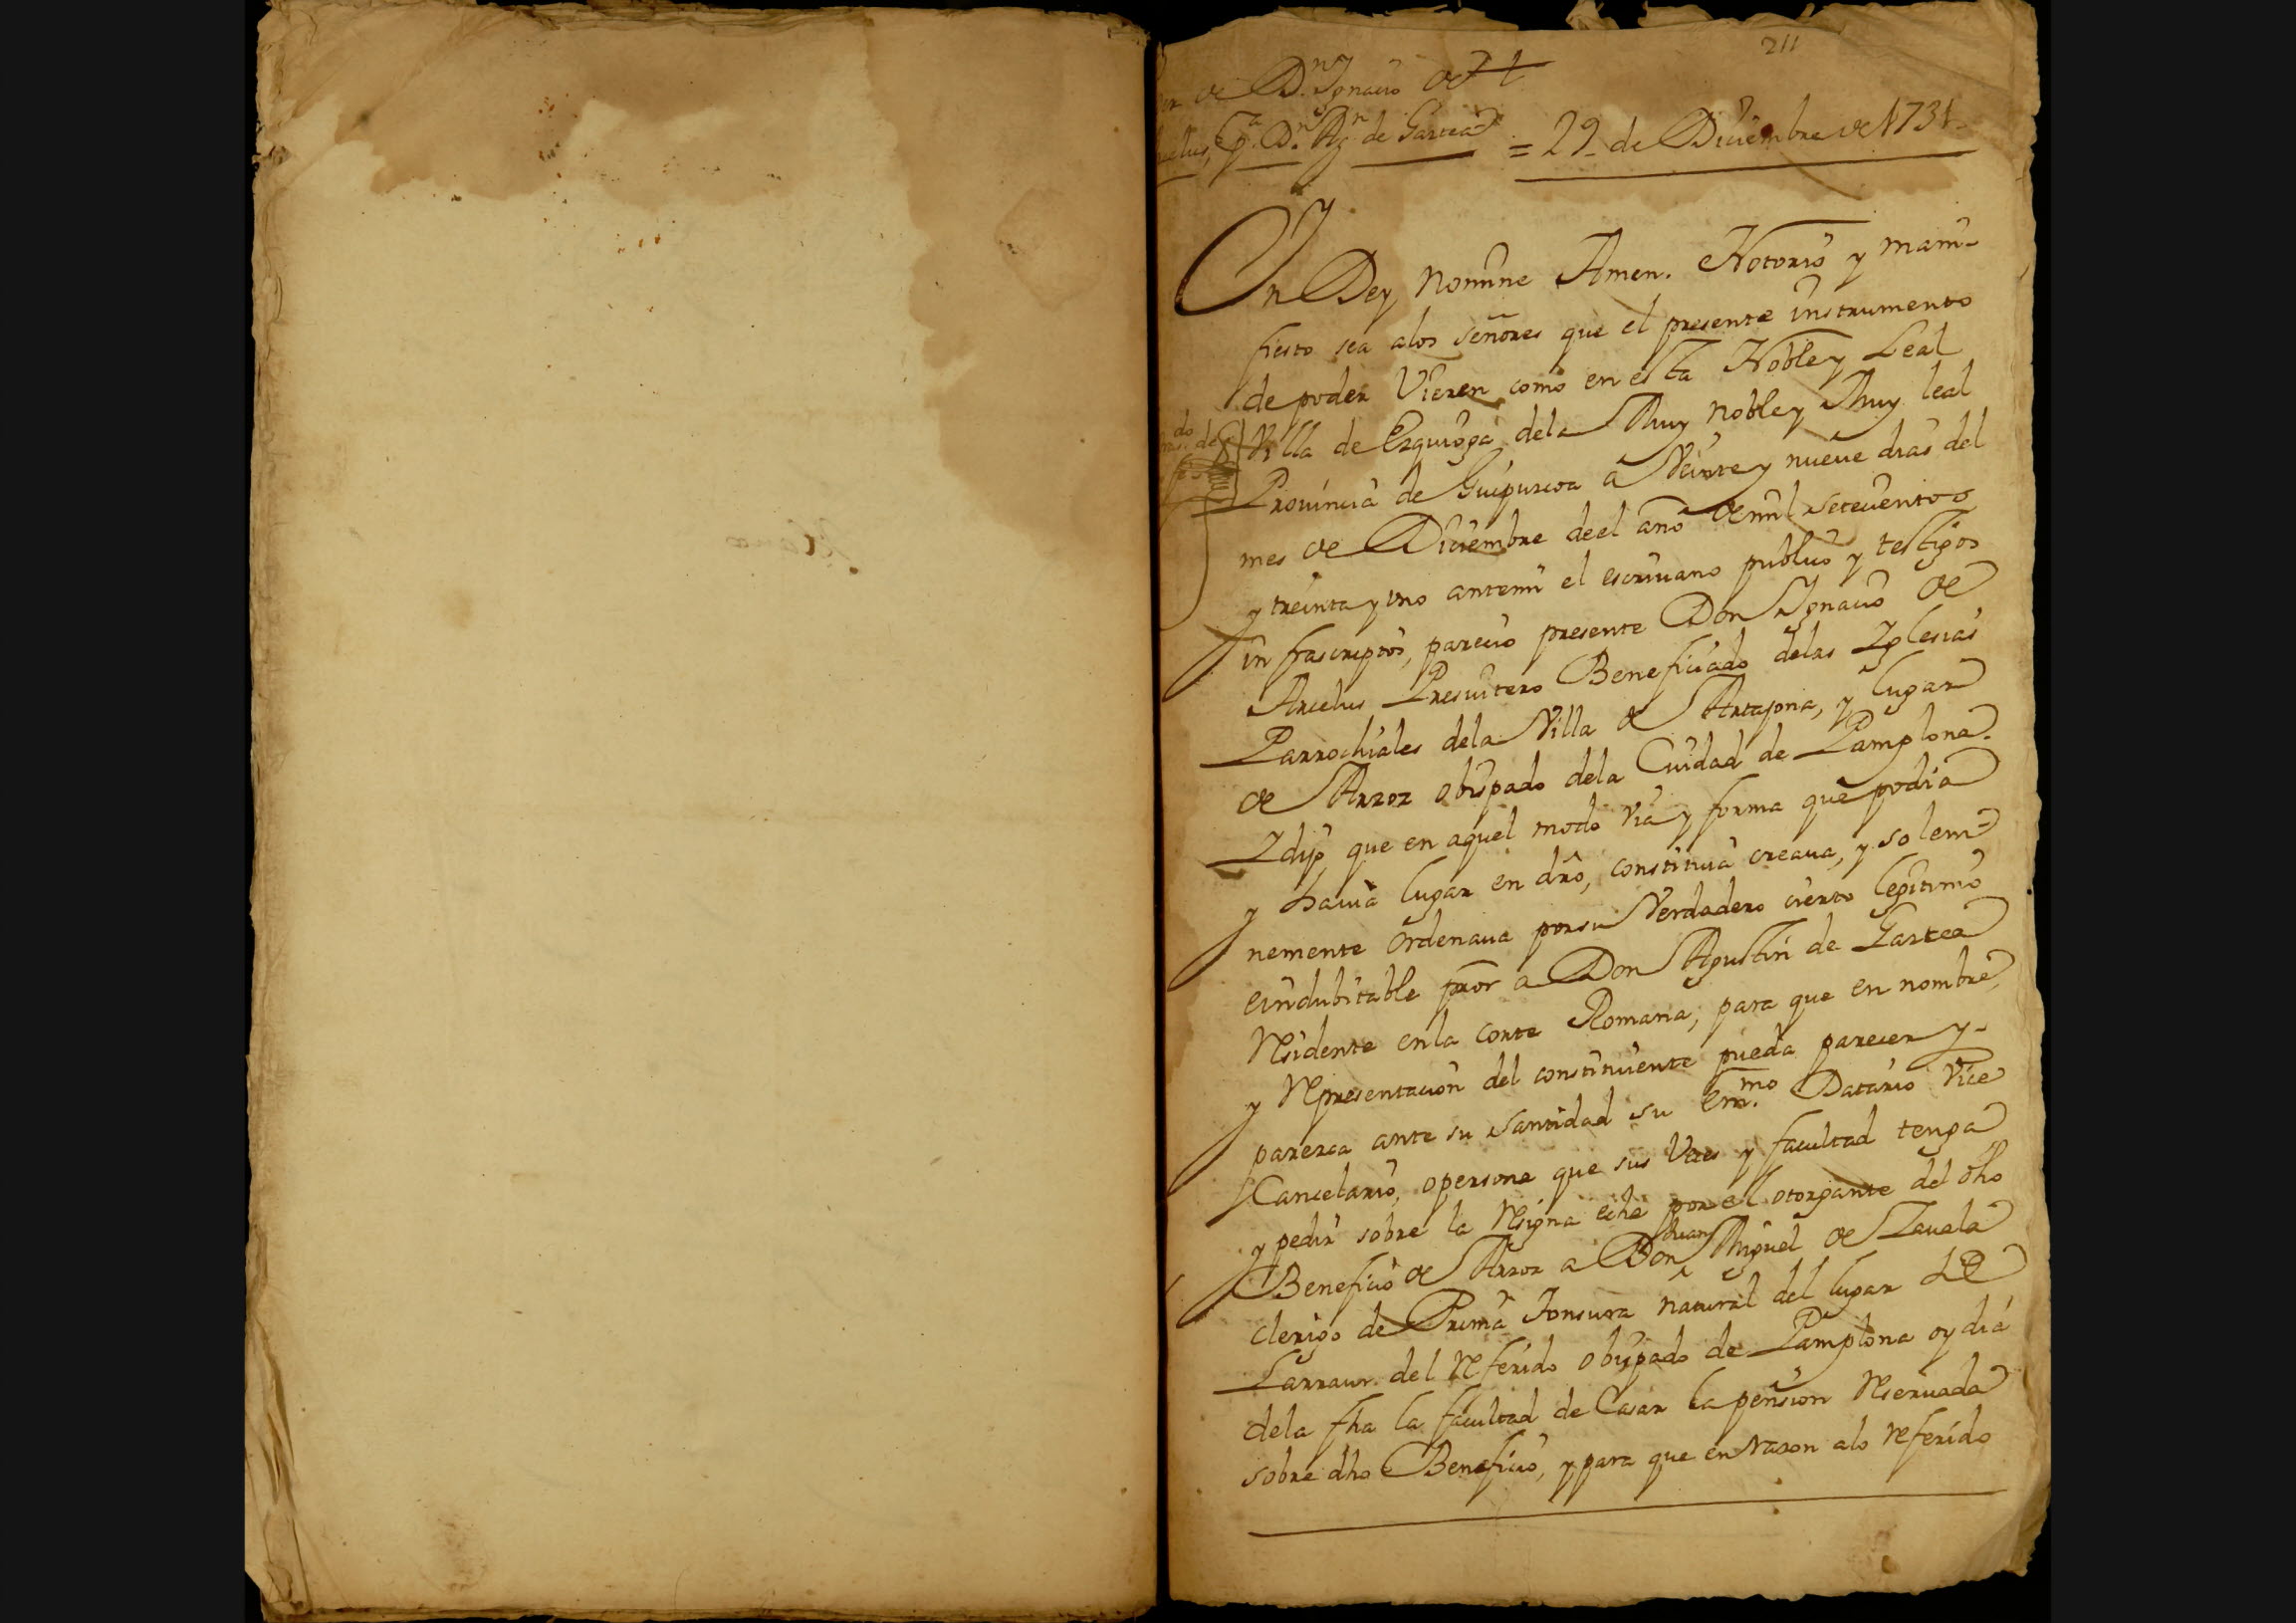 211
de Dn. Ygnacio de
Pa. Dn. Agn. de Gastea = 29 de Diciembre de 1731
In Dey Nomine Amen. Notorio y mani-
fiesto sea alos señores que el presente instrumento
de poder Vieren como en esta Noble y Leal
Villa de Ezquioga dela Muy Noble y Muy leal
Prouincia de Guipuzcoa a Veinte y nueue dias del
mes de Diciembre deel año de mil setecientos
y treinta y uno antemi el escriuano publico y testigos
infrascriptos, parecio presente Don Ygnacio de
Arcelus Presuitero Beneficiado delas Yglesias
Parrochiales dela Villa de Artajona, y lugar
de Arzoz obispado dela Ciudad de Pamplona.
Y dijo que en aquel modo Via y forma que podia
y hauia lugar en dro, constituia creaua, y solem-
nemente ordenaua por su Verdadero cierto legitimo
e indubitable pror a Don Agustin de Gastea
Residente en la corte Romana, para que en nombre,
y Representacion del constituiente pueda parecer y-
parezca ante su Santidad su Emmo. Datario Vice
Cancelario, o persona que sus Veces y facultad tenga
y pedir sobre la Resigna echa por el otorgante del dho
Beneficio de Arzoz a Don Juan Miguel de Zauala
clerigo de Prima Tonsura natural del lugar de
Larraun del Referido obispado de Pamplona oy dia
dela fha la facultad de Casar la pension Reseruada
sobre dho Beneficio, y para que en razon alo referido